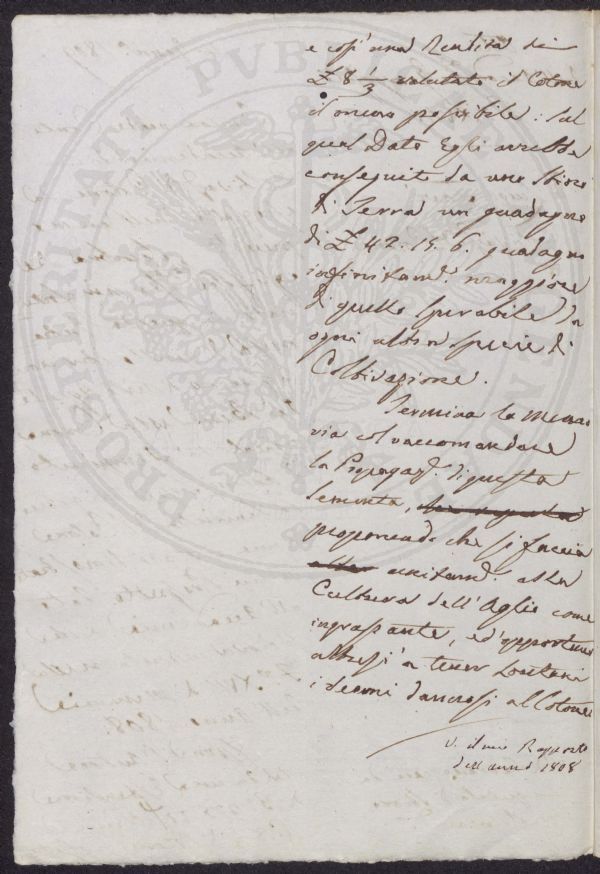 e così una Rendita di
£ 8 1/3 valutato il Cotone
il meno possibile: sul
qual Dato Egli avrebbe
conseguito da uno Stioro
di Terra un guadagno
di £ 42. 15. 6. guadagno
infinitam.e maggiore
di quello sperabile da
ogni altra specie di
Coltivazione.
Termina la Memo
ria col raccomandare
la Propagaz.e di questa
Sementa,
proponendo che si faccia
unitam.e alla
Cultura dell'Aglio come
ingrassante, ed opportuno
altresì a tener lontani
i dannosi al Cotone
V. il mio Rapporto
dell'anno 1808
PROSPERITATI PUBLICAE